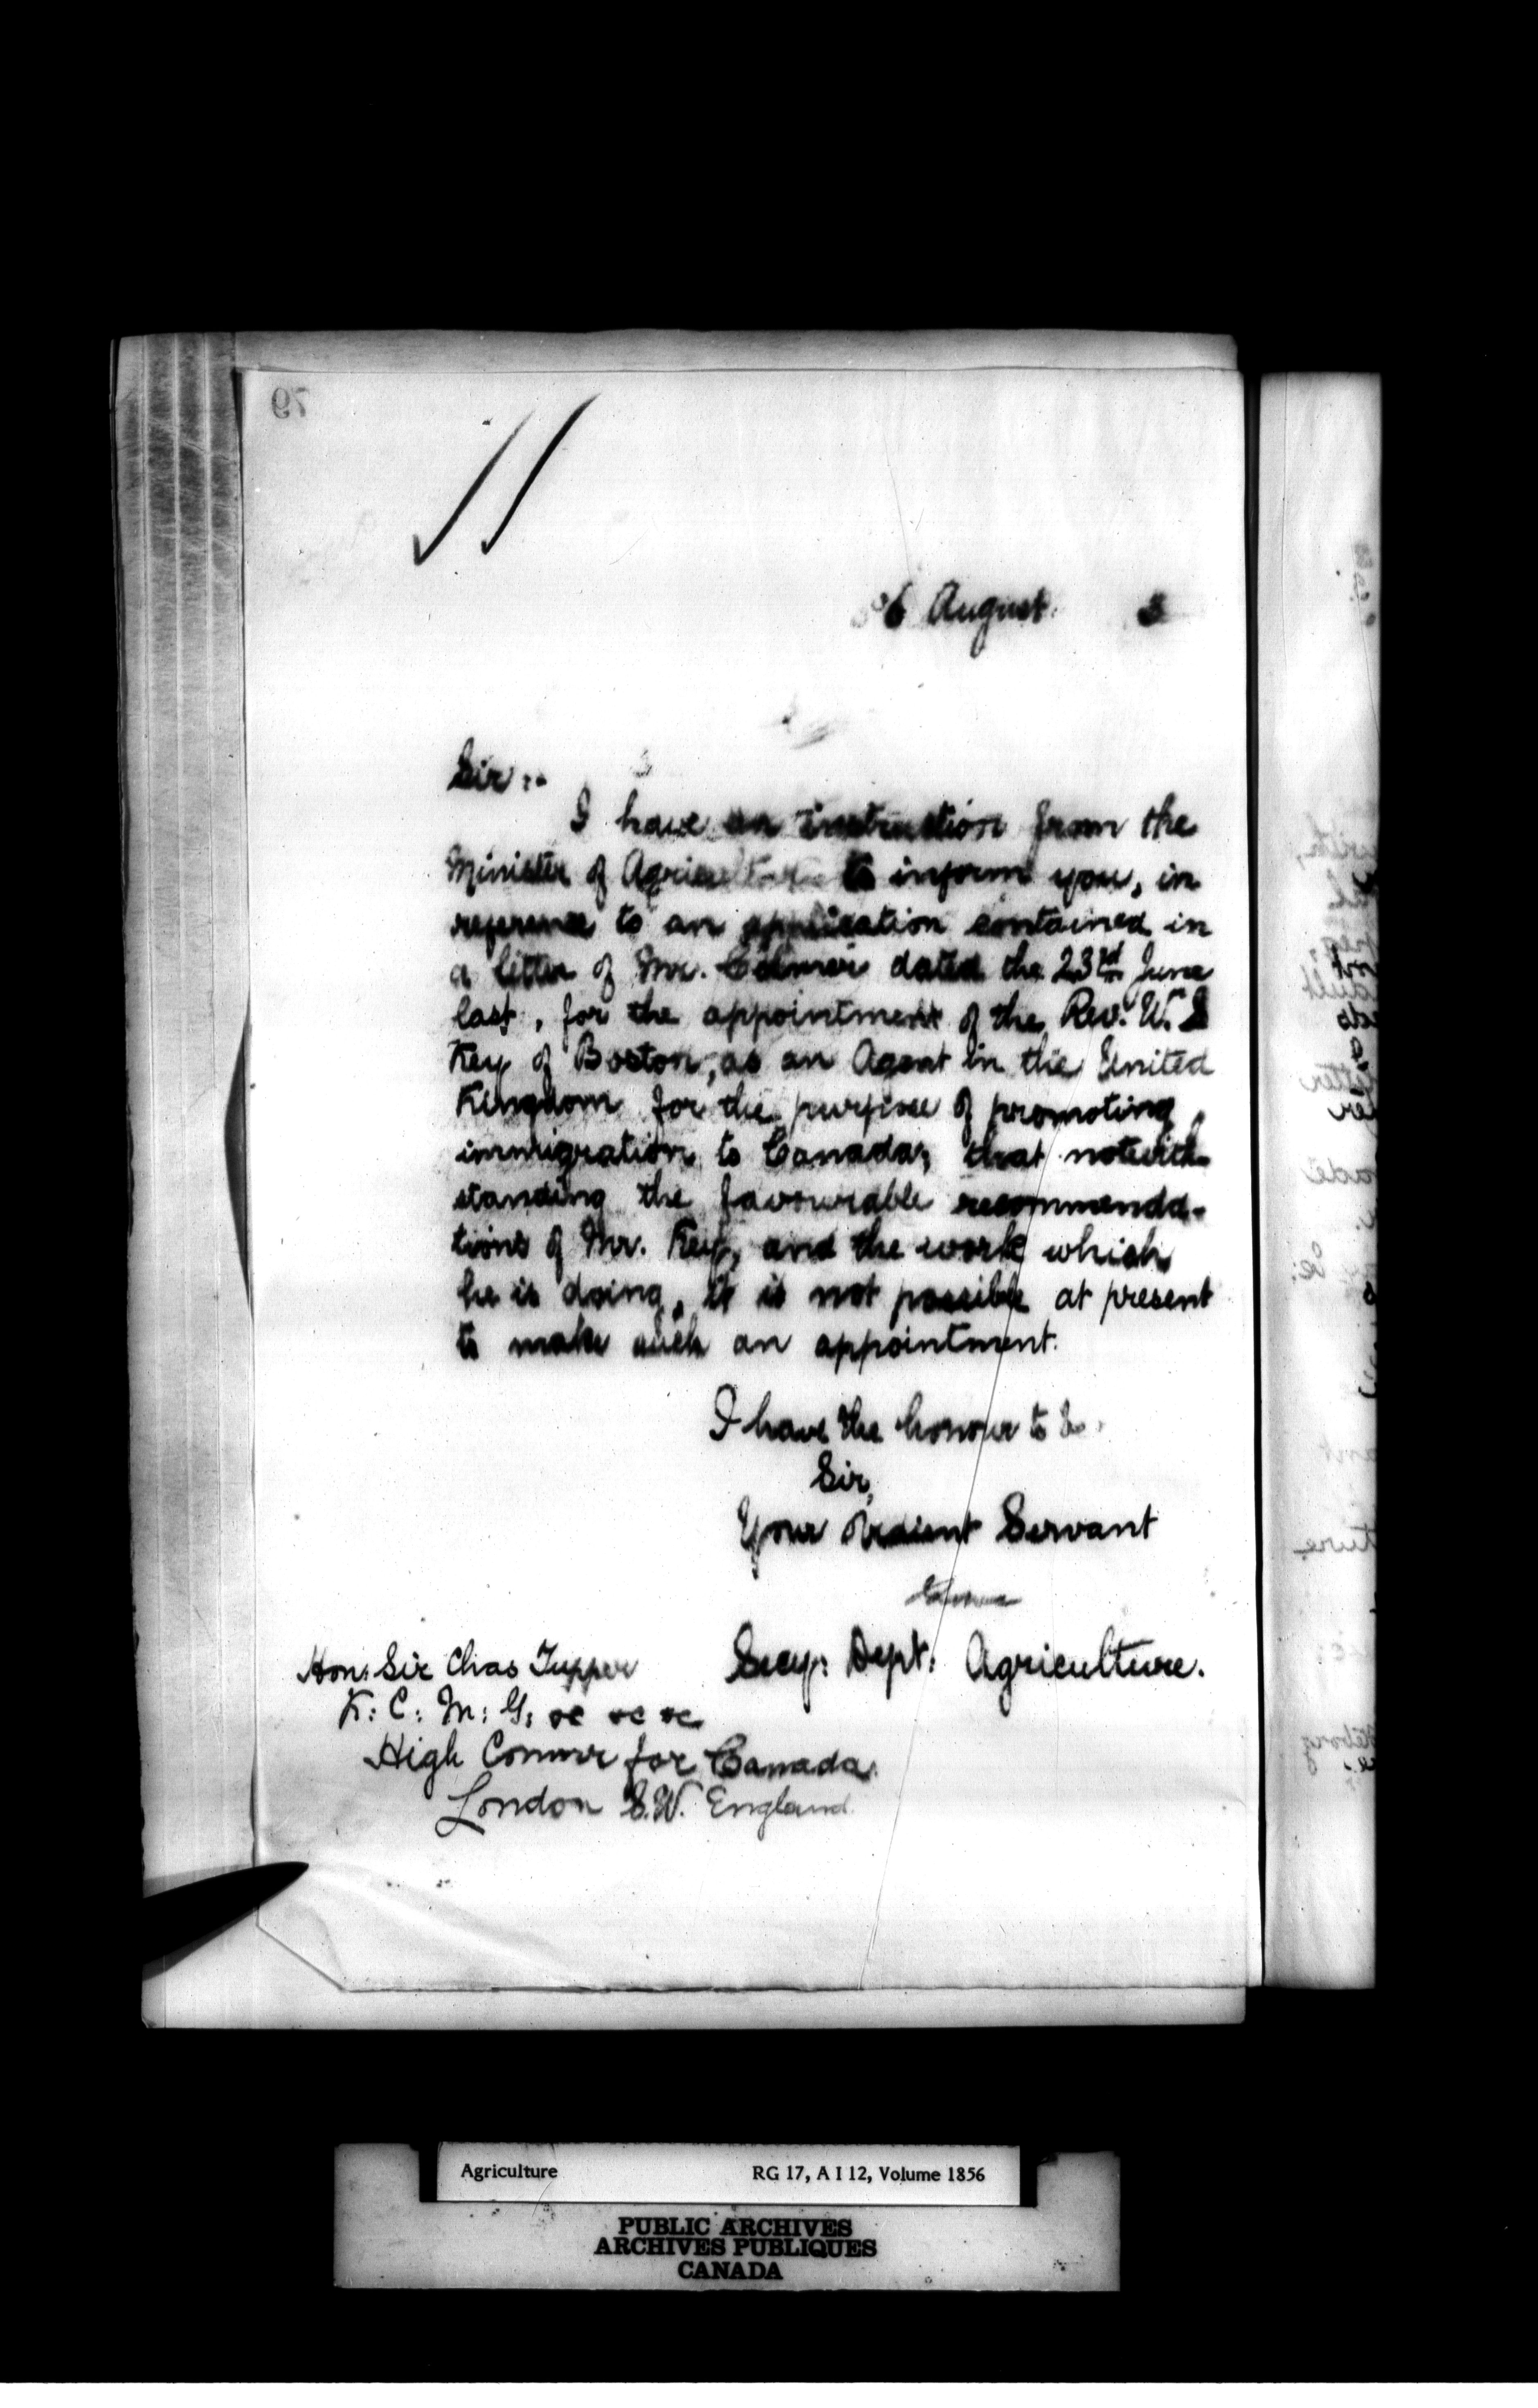 79
6 August 3
Sir:-
I have an instruction from the
Minister of Agriculture to inform you, in
reference to an application contained in
a letter of Mr. Colmer dated the 23rd June
last, for the appointment of the Rev. W. S
Key of Boston, as an Agent in the United
Kingdom for the purpose of promoting
immigration to Canada; that notwith-
standing the favourable recommenda-
tions of Mr. Key, and the work which
he is doing, it is not possible at present
to make such an appointment.
I have the honour to be.
Sir,
Your obedient Servant
Secy: Dept: Agriculture.
Hon: Sir Chas Tupper
K: C: M: G: &c &c &c
High Commr for Canada
London S.W. England.
Agriculture RG 17, A I 12, Volume 1856
PUBLIC ARCHIVES
ARCHIVES PUBLIQUES
CANADA